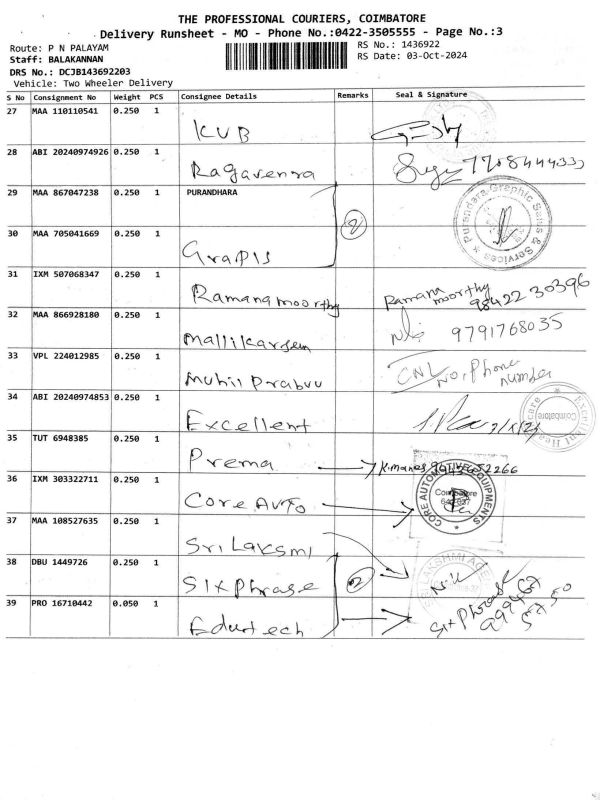 THE PROFESSIONAL COURIERS, COIMBATORE
Delivery Runsheet - MO - Phone No.:0422-3505555 - Page No.:3
Route: P N PALAYAM
RS No.: 1436922
Staff: BALAKANNAN
RS Date: 03-Oct-2024
DRS No.: DCJB143692203
Vehicle: Two Wheeler Delivery
S No Consignment No Weight PCS Consignee Details Remarks Seal & Signature
27 MAA 110110541 0.250 1
KVB
28 ABI 20240974926 0.250 1
Ragavenra
29 MAA 867047238 0.250 1 PURANDHARA
2
Purandara Graphic Sans & Services
30 MAA 705041669 0.250 1
Grapis
31 IXM 507068347 0.250 1
Ramanamoorthy
Ramana moorthy
98422 30396
32 MAA 866928180 0.250 1
Mallikarjun
9791768035
33 VPL 224012985 0.250 1
Muhil Prabuu
CNL No, Phone number
34 ABI 20240974853 0.250 1
Excellent
Excellent Coimbatore
35 TUT 6948385 0.250 1
Prema
36 IXM 303322711 0.250 1
Core Auto
CORE AUTOMOTIVE EQUIPMENTS
Coimbatore
37 MAA 108527635 0.250 1
Sri Laksmi
LAKSHMI
38 DBU 1449726 0.250 1
Sixphrase
2
39 PRO 16710442 0.050 1
Edutech
Six Phrase